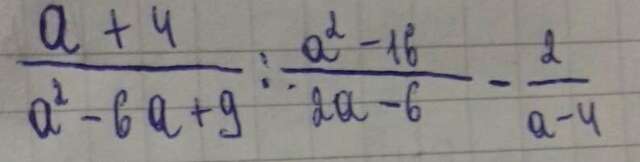 (a + 4)/(a² - 6a + 9) : (a² - 16)/(2a - 6) - 2/(a - 4)